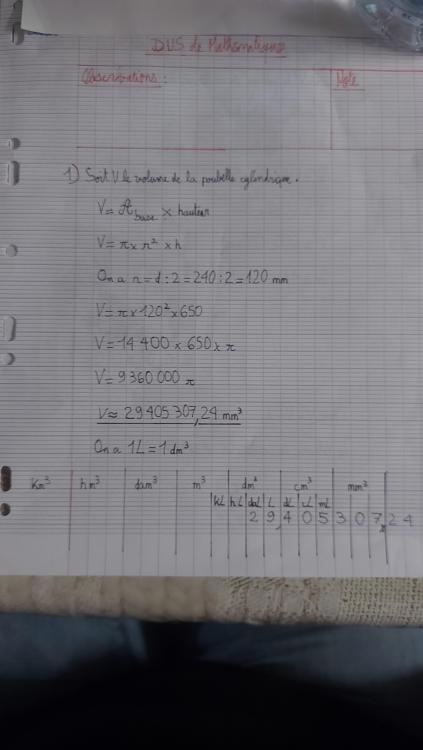 DUS de Mathématiques
Observations :
Note
1) Soit V le volume de la poubelle cylindrique.
V = A base × hauteur
V = π × r² × h
On a r = d : 2 = 240 : 2 = 120 mm
V = π × 120² × 650
V = 14 400 × 650 × π
V = 9 360 000 π
V ≈ 29 405 307,24 mm³
On a 1L = 1 dm³
Km³ hm³ dam³ m³ dm³ cm³ mm³
kL hL daL L dL cL mL
2 9, 4 0 5 3 0 7, 2 4